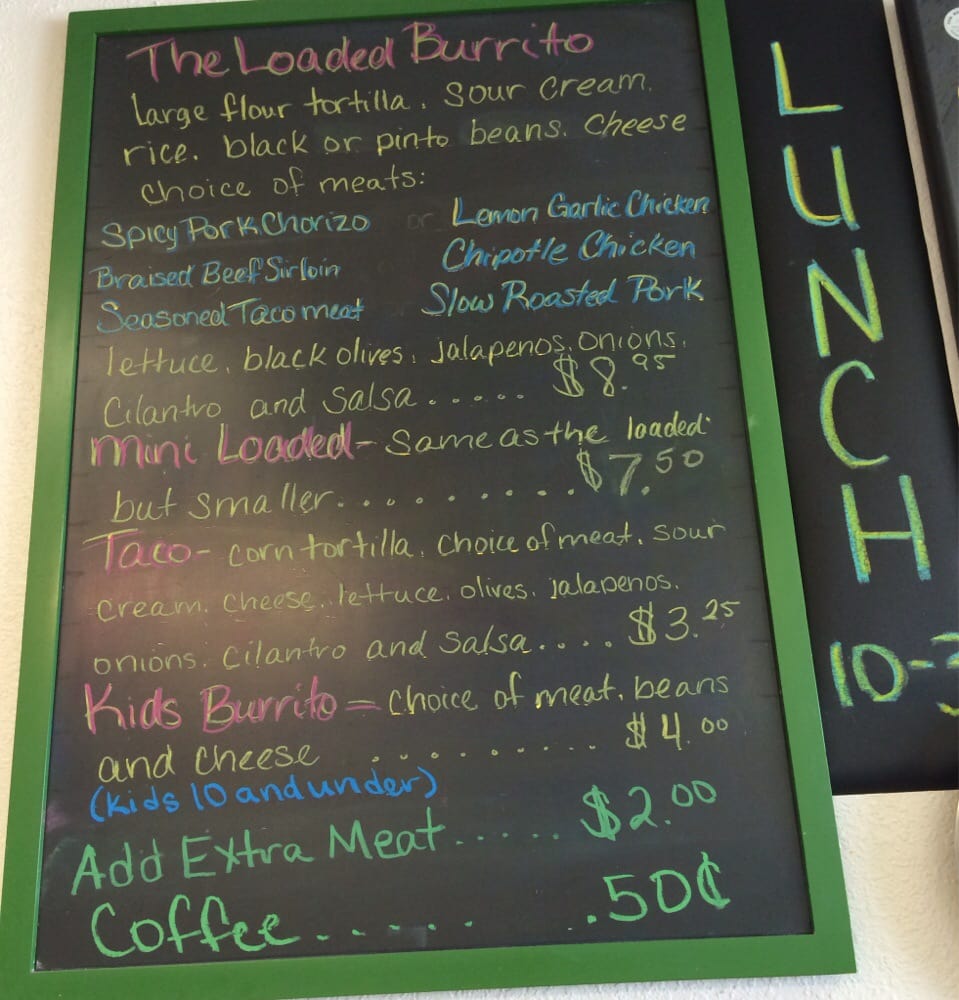 The Loaded Burrito
Large flour tortilla. Sour cream.
rice. black or pinto beans. cheese
choice of meats:
Spicy Pork Chorizo or Lemon Garlic Chicken
Braised Beef Sirloin Chipotle Chicken
Seasoned Taco meat Slow Roasted Pork
lettuce. black olives. jalapenos. onions.
Cilantro and Salsa..... $8.95
Mini Loaded - Same as the loaded
but smaller.......... $7.50
Taco - corn tortilla. choice of meat. sour
cream. cheese. lettuce. olives. jalapenos.
onions. cilantro and salsa.... $3.25
Kids Burrito - choice of meat. beans
and cheese ......... $4.00
(kids 10 and under)
Add Extra Meat..... $2.00
Coffee..... .50¢
LUNCH
10-